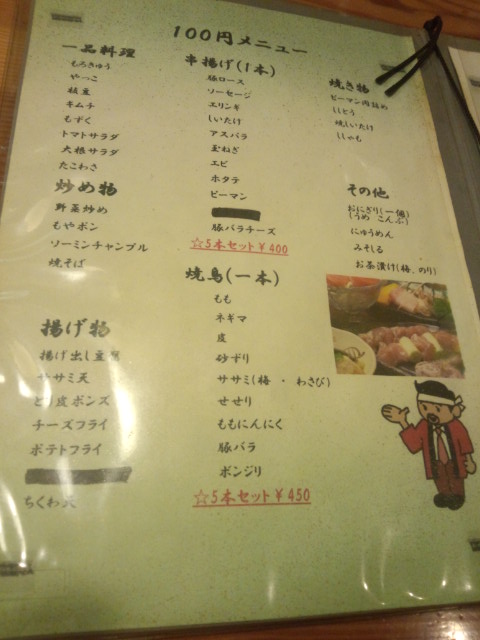 100円メニュー
一品料理
もろきゅう
やっこ
枝豆
キムチ
もずく
トマトサラダ
大根サラダ
たこわさ
炒め物
野菜炒め
もやポン
ソーミンチャンプル
焼そば
揚げ物
揚げ出し豆腐
ササミ天
とり皮ポンズ
チーズフライ
ポテトフライ
ちくわ天
串揚げ(1本)
豚ロース
ソーセージ
エリンギ
しいたけ
アスパラ
玉ねぎ
エビ
ホタテ
ピーマン
豚バラチーズ
☆5本セット¥400
焼鳥(一本)
もも
ネギマ
皮
砂ずり
ササミ(梅・わさび)
せせり
ももにんにく
豚バラ
ボンジリ
☆5本セット¥450
焼き物
ピーマン肉詰め
ししとう
焼しいたけ
ししゃも
その他
おにぎり(一個)
(うめ こんぶ)
にゅうめん
みそしる
お茶漬け(梅、のり)